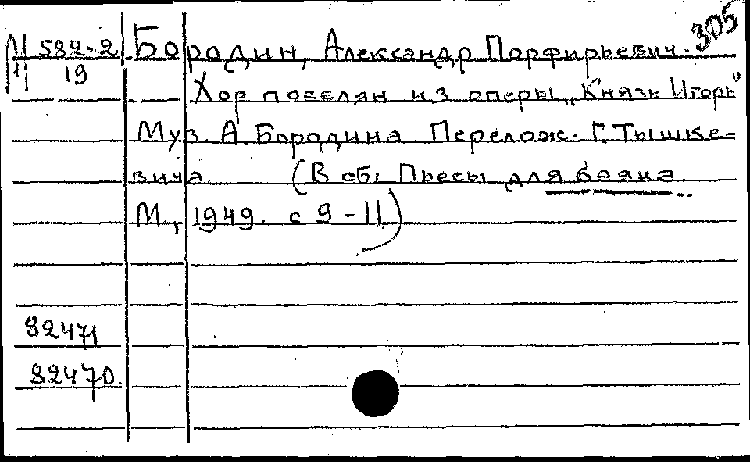 305
М 584-2 Бородин, Александр Порфирьевич.
19 Хор поселян из оперы "Князь Игорь"
Муз. А. Бородина Перелож. Г. Тышке-
вича (В сб: Пьесы для баяна
М., 1949. с 9-11)
82471
82470.